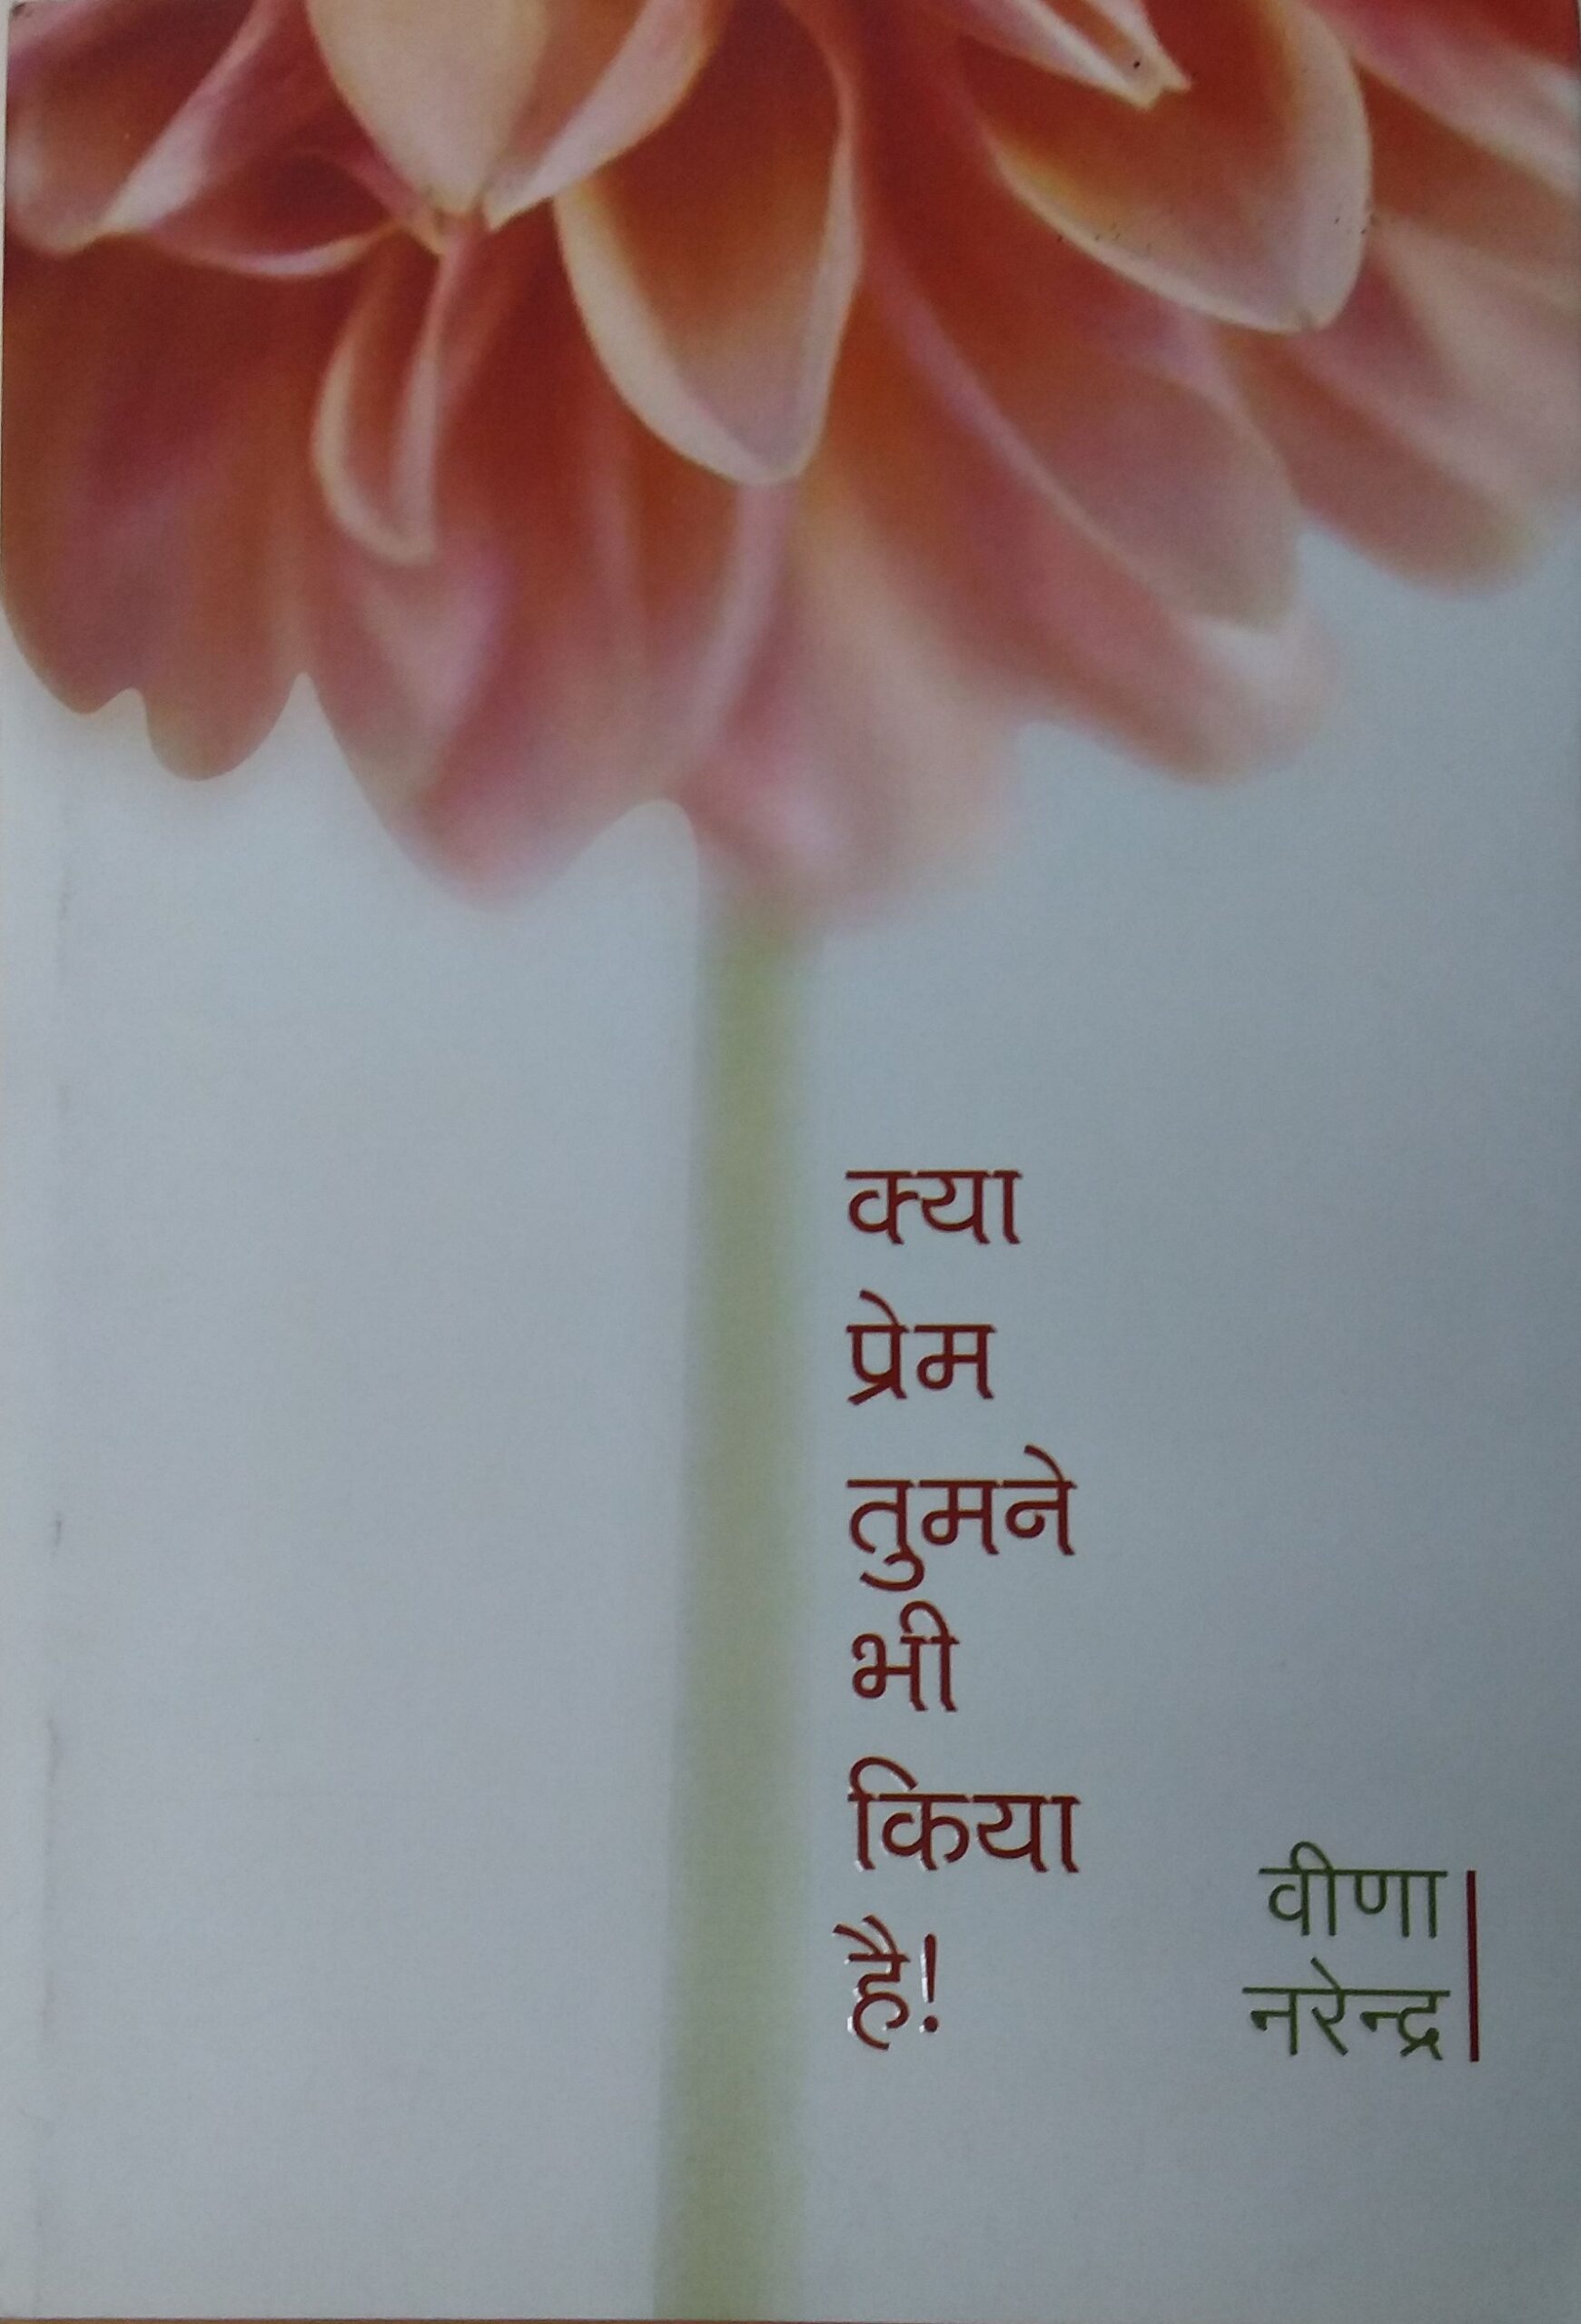 क्या
प्रेम
तुमने
भी
किया
है!
वीणा
नरेन्द्र